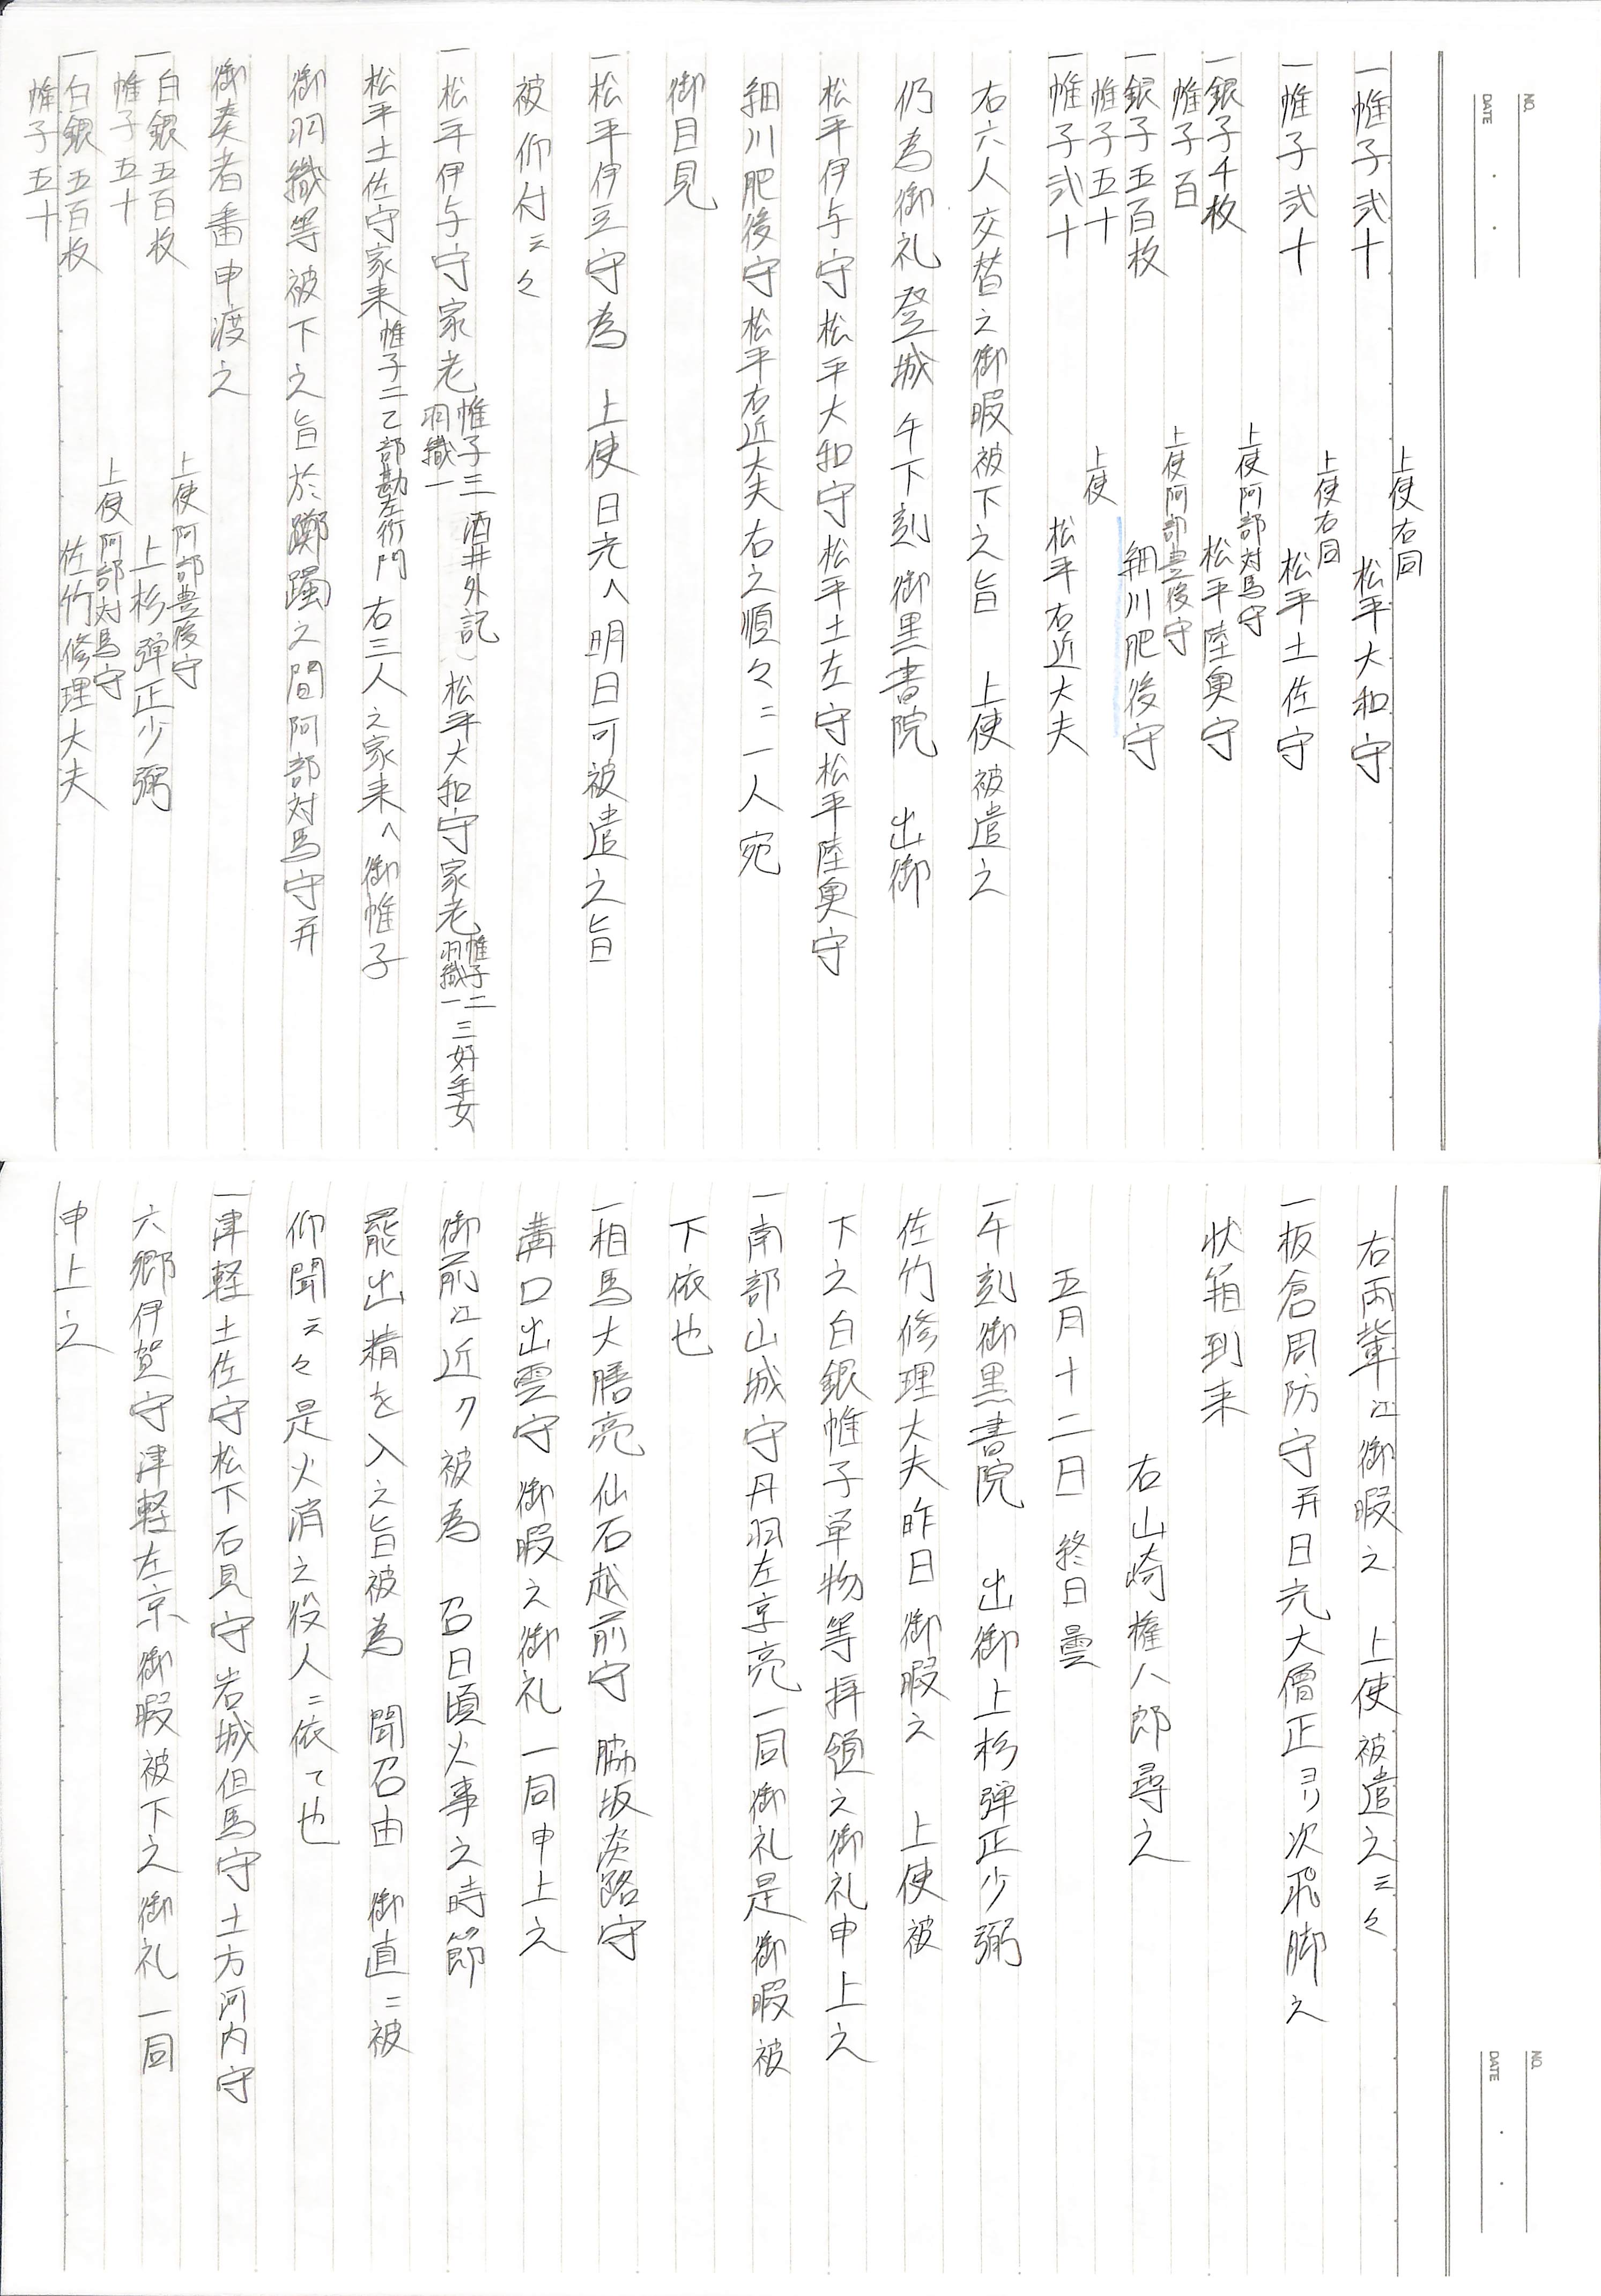 NO.
DATE
上使右同
一帷子弐十 松平大和守
上使右同
一帷子弐十 松平土佐守
上使阿部対馬守
一銀子千枚 松平陸奥守
帷子百
上使阿部豊後守
一銀子五百枚 細川肥後守
帷子五十
上使
一帷子弐十 松平右近大夫
右六人交替之御暇被下之旨 上使被遣之
仍為御礼登城午下刻御黒書院 出御
松平伊与守松平大和守松平土左守松平陸奥守
細川肥後守松平右近大夫右之順々ニ一人宛
御目見
一松平伊豆守為 上使日光へ明日可被遣之旨
被仰付云々
一松平伊与守家老帷子三羽織一酒井外記 松平大和守家老帷子二羽織一三好手女
松平土佐守家来帷子二乙部勘左衛門 右三人之家来へ御帷子
御羽織等被下之旨於躑躅之間阿部対馬守并
御奏者番申渡之
上使阿部豊後守
一白銀五百枚 上杉弾正少弼
帷子五十
上使阿部対馬守
一白銀五百枚 佐竹修理大夫
帷子五十
NO.
DATE
右両輩江御暇之 上使被遣之云々
一板倉周防守并日光大僧正ヨリ次飛脚之
状箱到来
右山崎権八郎尋之
五月十二日 終日曇
一午刻御黒書院 出御上杉弾正少弼
佐竹修理大夫昨日御暇之 上使被
下之白銀帷子単物等拝領之御礼申上之
一南部山城守丹羽左京亮一同御礼是御暇被
下依也
一相馬大膳亮仙石越前守 脇坂淡路守
溝口出雲守御暇之御礼一同申上之
御前江近ク被為 召日頃火事之時節
罷出精を入之旨被為 聞召由 御直ニ被
仰聞云々是火消之役人ニ依て也
一津軽土佐守松下石見守岩城但馬守土方河内守
六郷伊賀守津軽左京御暇被下之御礼一同
申上之